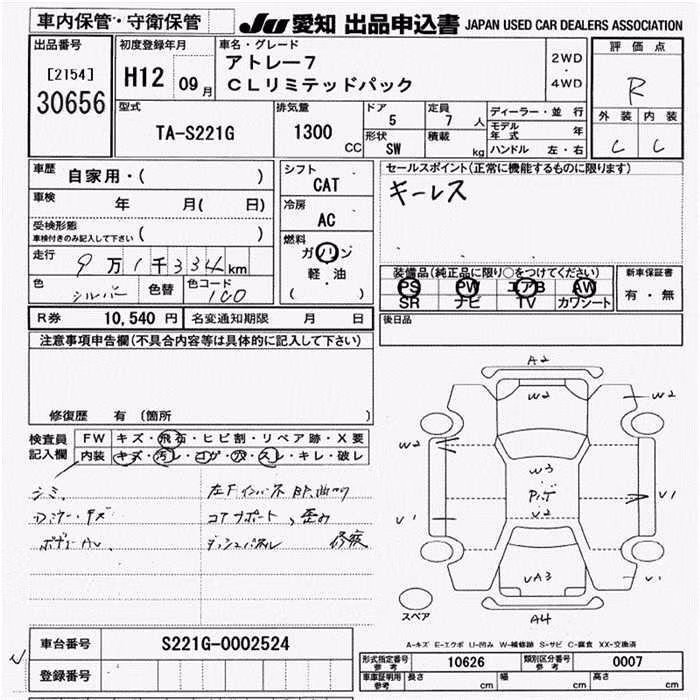 車内保管・守衛保管
JU 愛知 出品申込書 JAPAN USED CAR DEALERS ASSOCIATION
出品番号
[2154]
30656
初度登録年月
H12 09月
車名・グレード
アトレー7
CLリミテッドパック
2WD
・
4WD
評価点
R
外装 内装
C C
型式
TA-S221G
排気量
1300
CC
ドア
5
定員
7 人
形状
SW
積載
kg
ディーラー・並行
モデル年式 年
ハンドル 左・右
車歴 自家用・( )
車検 年 月( 日)
受検形態
車検付きのみ記入して下さい ( )
走行 9万1千334km
色 シルバー 色替 色コード 1C0
シフト
CAT
冷房
AC
燃料
ガソリン
軽・油
( )
セールスポイント(正常に機能するものに限ります)
キーレス
装備品(純正品に限り○をつけてください)
PS PW エアB AW
SR ナビ TV カワシート
新車保証書
有・無
R券 10,540 円 名変通知期限 月 日
後日品
注意事項申告欄(不具合内容等は具体的に記入して下さい)
修復歴 有 (箇所 )
検査員
記入欄
FW キズ・飛石・ヒビ割・リペア跡・X要
内装 キズ・汚レ・コゲ・穴・スレ・キレ・破レ
シミ、
左Fインパネ 曲り
コアサポート、歪み
ダッシュパネル 修疲
A2
W2
W2
W2
W3
P,イT
V2
V1
V1
V1
UA3
A4
スペア
A-キズ E-エクボ U-凹み W-補修跡 S-サビ C-腐食 XX-交換済
車台番号 S221G-0002524
登録番号
形式指定番号
参考
10626
類別区分番号
参考
0007
車庫証明用
参考
長さ cm 幅 cm 高さ cm